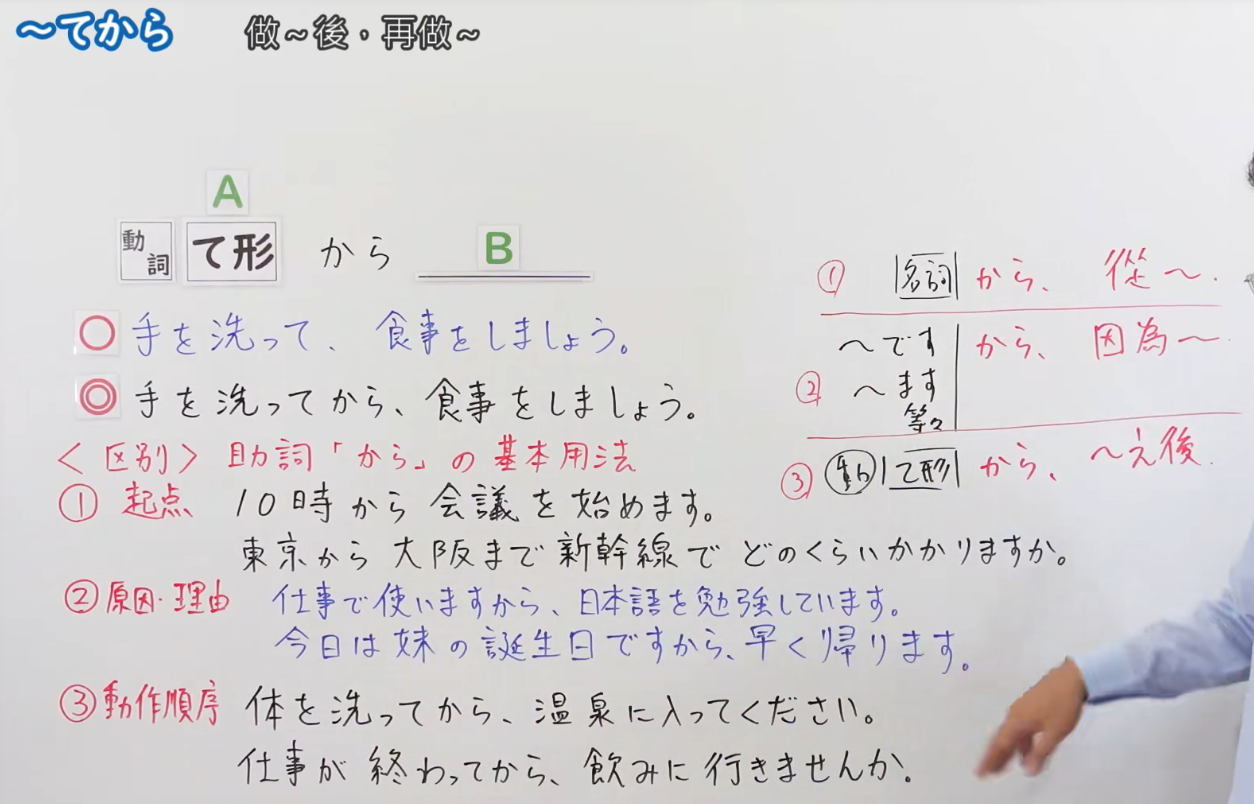 ～てから 做～後，再做～
A
動詞 て形 から B
○ 手を洗って、食事をしましょう。
◎ 手を洗ってから、食事をしましょう。
＜区別＞ 助詞「から」の基本用法
① 起点 10時から会議を始めます。
東京から大阪まで新幹線でどのくらいかかりますか。
② 原因・理由 仕事で使いますから、日本語を勉強しています。
今日は妹の誕生日ですから、早く帰ります。
③ 動作順序 体を洗ってから、温泉に入ってください。
仕事が終わってから、飲みに行きませんか。
① 名詞 から、 從～.
～です から、 因為～.
② ～ます
等々
③ 動 て形 から、 ～え後.